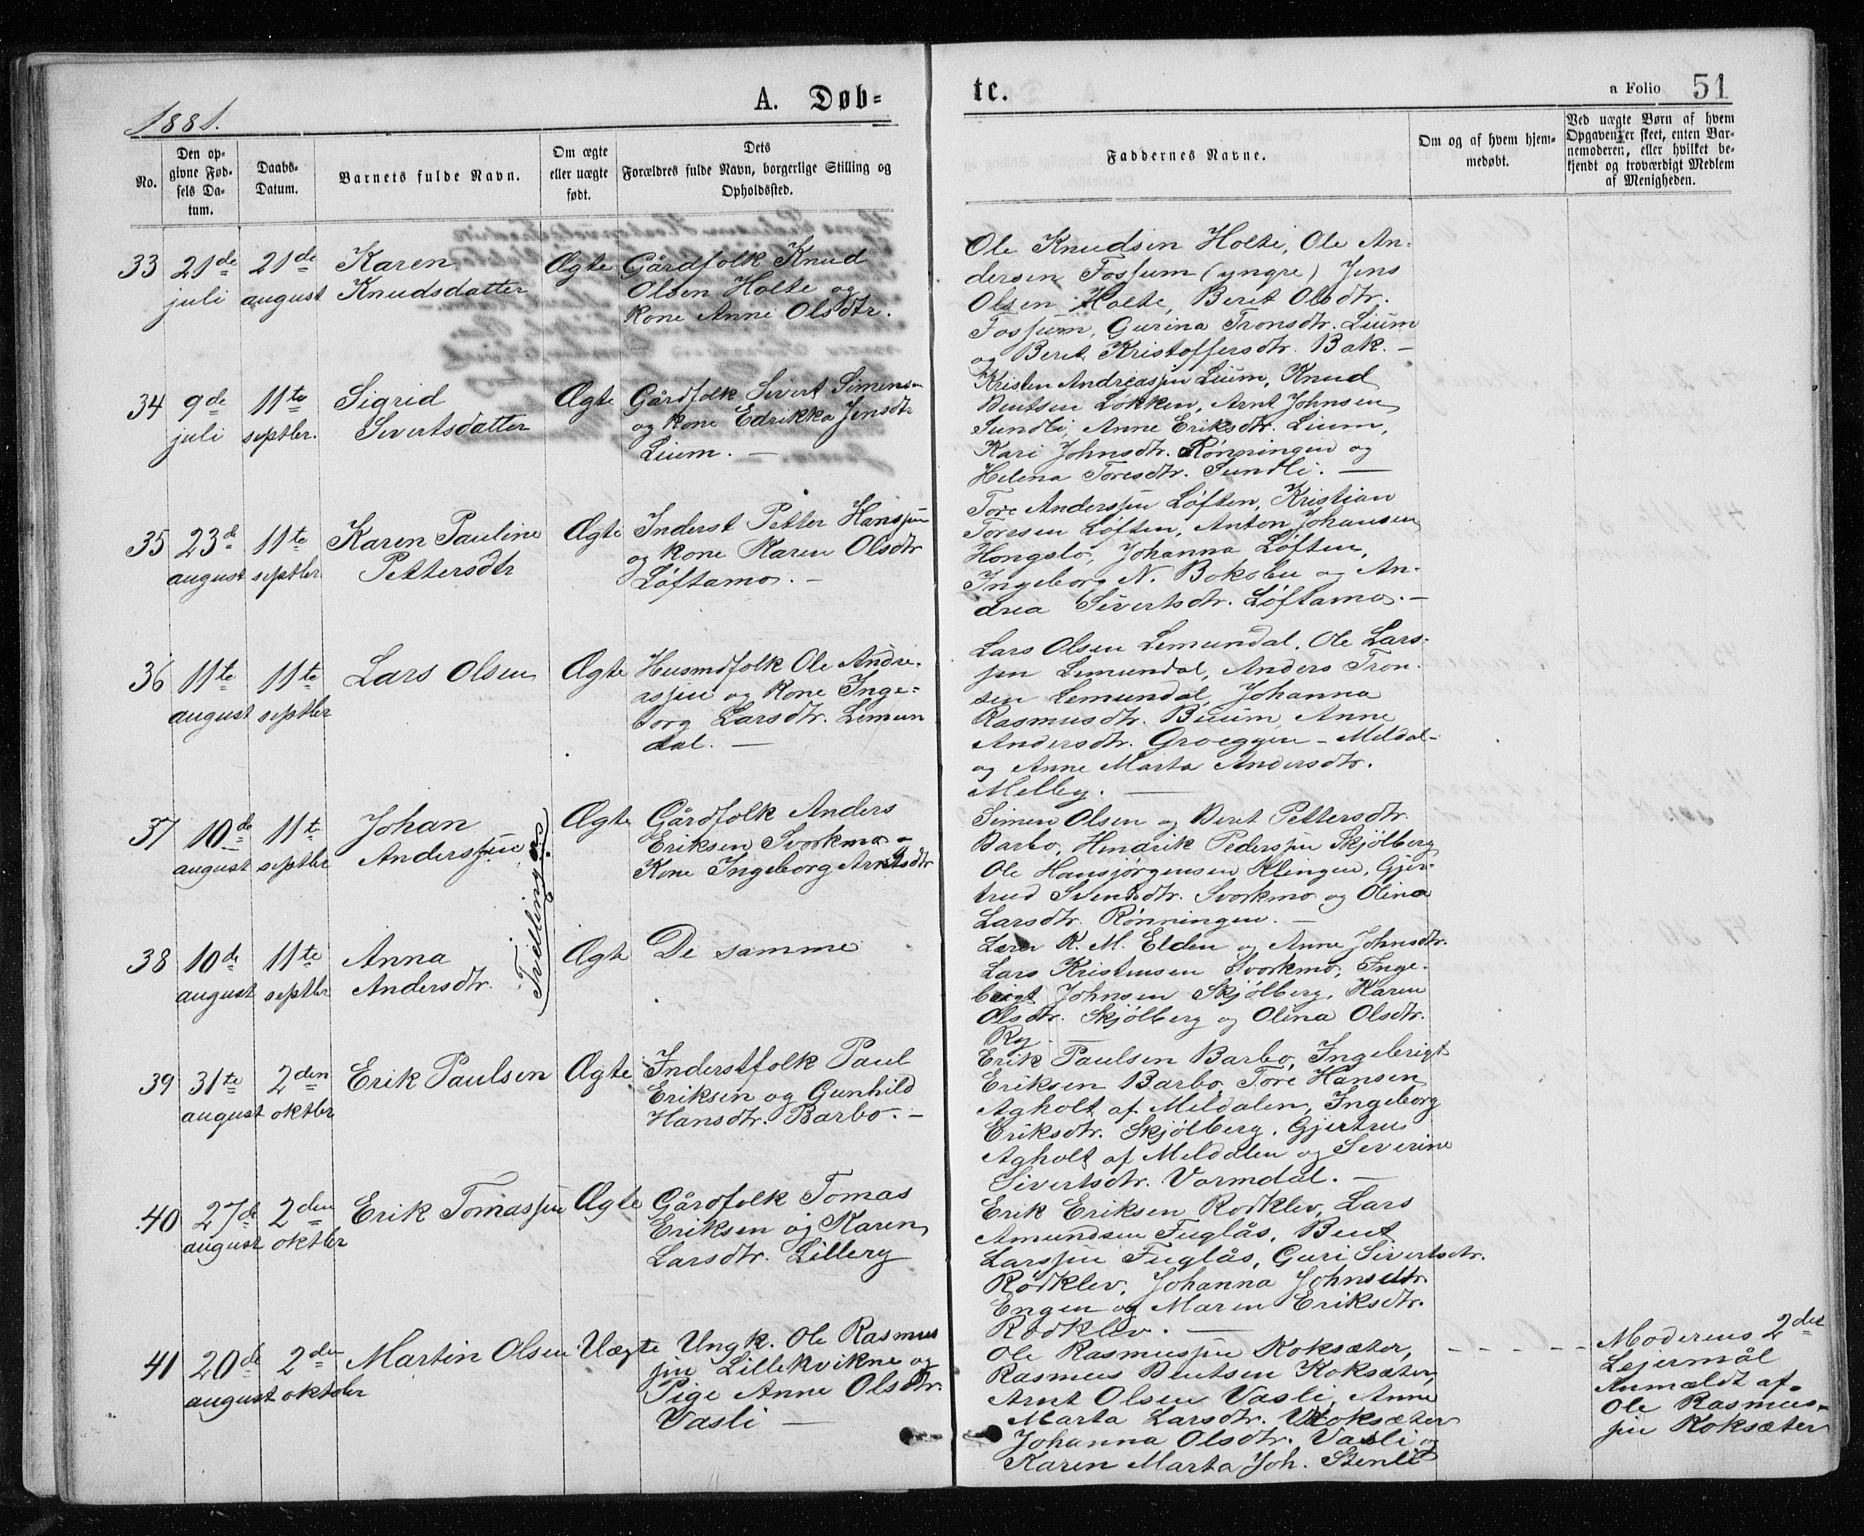 1881.
A. Døb-
te.
a Folio 51
No.
Den op-
givne Fød-
sels Da-
tum.
Daabs-
Datum.
Barnets fulde Navn.
Om ægte
eller uægte
født.
Dets
Forældres fulde Navn, borgerlige Stilling og
Opholdsted.
Faddernes Navne.
Om og af hvem hjem-
medøbt.
Ved uægte Børn af hvem
Opgaven er skeet, enten Bar-
nemoderen, eller hvilket be-
kjendt og troværdigt Medlem
af Menigheden.
33
21de
juli
21de
august
Karen
Knudsdatter
Ægte
Gårdfolk Knud
Olsen Holte og
Kone Anne Olsdtr.
Ole Knudsen Holte, Ole An-
dersen Fossum (yngre) Jens
Olsen Holte, Beret Olsdtr.
Fossum, Gurina Tronsdtr. Lium
og Beret Kristoffersdtr. Bak. -
34
9de
juli
11te
septbr.
Sigrid
Sivertsdatter
Ægte
Gårdfolk Sivert Simensen
og Kone Edrikka Jensdtr
Lium. -
Kristen Andreassen Lium, Knud
Bentsen Løkken, Arnt Johnsen
Sundli, Anne Eriksdtr. Lium,
Kari Johnsdtr. Rønningen og
Helena Toresdtr. Sundli. -
35
23d
august
11te
septbr
Karen Pauline
Pettersdtr
Ægte
Inderst Petter Hanssen
og Kone Karen Olsdtr
Løftamo. -
Tore Anderssen Løften, Kristian
Toresen Løften, Anton Johansen
Hongslo, Johanna Løften,
Ingeborg N. Boksbu og An-
drea Sivertsdtr. Løftamo. -
36
11te
august
11te
septbr
Lars Olsen
Ægte
Husmdfolk Ole Andre-
assen og Kone Inge-
borg Larsdtr. Lemun
dal. -
Lars Olsen Lemundal, Ole Lars-
sen Lemundal, Anders Tron-
sen Lemundal, Johanna
Rasmusdtr. Buum, Anne
Andersdtr. Groeggen - Meldal -
og Anne Marta Andersdtr.
Melby. -
37
10de
august
11te
septbr
Johan
Anderssen
Tvillinger
Ægte
Gårdfolk Anders
Eriksen Svorkmo -
Kone Ingeborg Arntsdtr
Simen Olsen og Beret Pettersdtr
Barbo, Hendrik Pederssen Skjølberg
Ole Hansjørgensen Klingen, Gjer-
trud Svendsdtr. Svorkmo og Olina
Larsdtr. Rønningen. -
38
10de
august
11te
septbr
Anna
Andersdtr.
Ægte
De samme
Lærer K. M. Elden og Anne Johnsdtr.
Lars Kristensen Svorkmo, Inge-
brigt Johnsen Skjølberg, Karen
Olsdtr. Skjølberg og Olina Olsdtr.
Ry -
39
31te
august
2den
oktbr
Erik Paulsen
Ægte
Inderstfolk Paul
Eriksen og Gunhild
Hansdtr. Barbo. -
Erik Paulsen Barbo, Ingebrigt
Eriksen Barbo, Tore Hansen
Agholt af Meldalen, Ingeborg
Eriksdtr. Skjølberg, Gjertrud
Agholt af Meldalen og Severine
Sivertsdtr. Vormdal. -
40
27de
august
2den
oktbr
Erik Tomassen
Ægte
Gårdfolk Tomas
Eriksen og Karen
Larsdtr. Lillery
Erik Eriksen Rødklev, Lars
Amundsen Fuglås, Bent
Larssen Fuglås, Guri Sivertsdtr.
Rødklev, Johanna Johnsdtr.
Engen og Maren Eriksdtr.
Rødklev. -
41
20de
august
2den
oktober
Martin Olsen
Uægte
Ungk. Ole Rasmus
sen Lillekvikne og
Pige Anne Olsdtr.
Vasli -
Ole Rasmussen Koksæter,
Rasmus Bentsen Koksæter,
Arnt Olsen Vasli, Anne
Marta Larsdtr. Koksæter
Johanna Olsdtr. Vasli og
Karen Marta Joh. Stenli
Moderens 2det
Lejermål
Anmeldt af
Ole Rasmus-
sen Koksæter